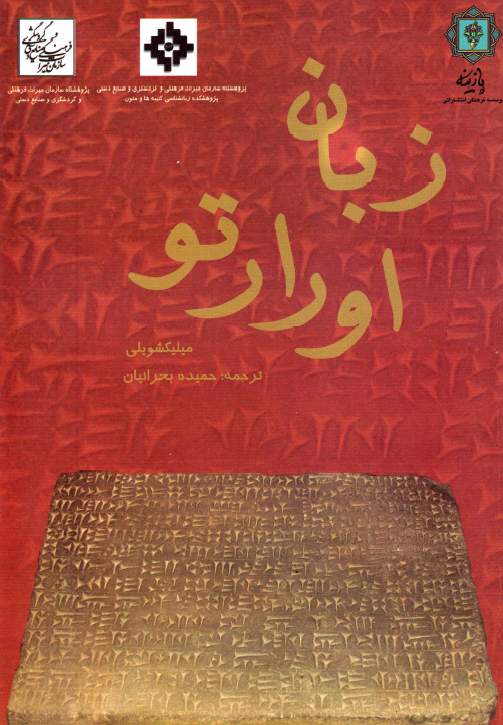 پازینه
موسسه فرهنگی انتشاراتی
پژوهشگاه سازمان میراث فرهنگی و گردشگری و صنایع دستی
پژوهشکده زبانشناسی کتیبه ها و متون
پژوهشگاه سازمان میراث فرهنگی
و گردشگری و صنایع دستی
زبان
اورارتو
میلیکشویلی
ترجمه: حمیده بحرانیان